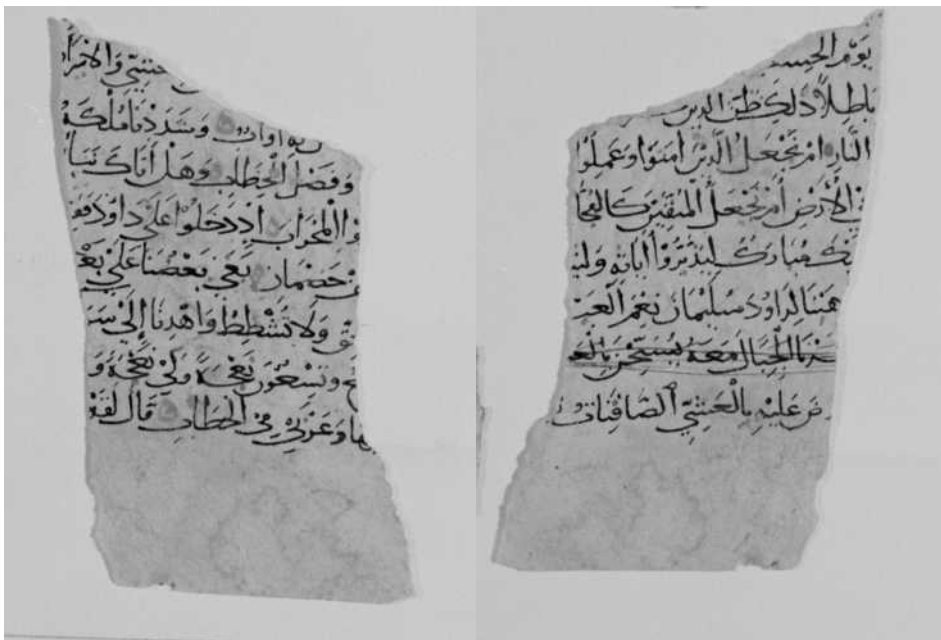 عَشِيِّ وَالْاِشْرَا
لَهُ اَوَّابٌ وَشَدَدْنَا مُلْكَهُ
وَفَصْلَ الْخِطَابِ وَهَلْ اَتَاكَ نَبَأُ
وا الْمِحْرَابَ اِذْ دَخَلُوْا عَلَى دَاوُدَ فَفَز
خَصْمَانِ بَغَى بَعْضُنَا عَلَى بَعْ
وَلَا تُشْطِطْ وَاهْدِنَا اِلَى سَوَ
وَتِسْعُونَ نَعْجَةً وَلِيَ نَعْجَةٌ وَ
ها وَعَزَّنِي فِي الْخِطَابِ قَالَ لَقَدْ
يَوْمَ الْحِسَ
بَاطِلًا ذَلِكَ ظَنُّ الَّذِينَ
النَّارِ اَمْ نَجْعَلُ الَّذِينَ اَمَنُوا وَعَمِلُوا
فِي الْاَرْضِ اَمْ نَجْعَلُ الْمُتَّقِينَ كَالْفُجَّا
ك مُبَارَكٌ لِيَدَّبَّرُوْا اَيَاتِهِ وَلِيَ
هَبْنَا لِدَاوُدَ سُلَيْمَانَ نِعْمَ الْعَبْ
نَا الْجِبَالَ مَعَهُ يُسَبِّحْنَ بِالْعَ
رِضَ عَلَيْهِ بِالْعَشِيِّ الصَّافِنَاتُ